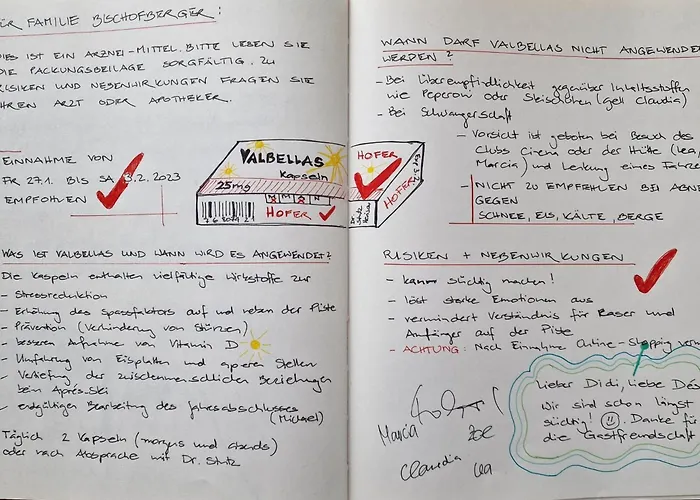 FÜR FAMILIE BISCHOFBERGER:
DIES IST EIN ARZNEI-MITTEL. BITTE LESEN SIE
DIE PACKUNGSBEILAGE SORGFÄLTIG. ZU
RISIKEN UND NEBENWIRKUNGEN FRAGEN SIE
IHREN ARZT ODER APOTHEKER.
EINNAHME VON
FR 27.1. BIS SA 3.2.2023
EMPFOHLEN
VALBELLAS
Kapseln
25mg
HOFER
HOFER
HOFER
Dr. Stutz
WAS IST VALBELLAS UND WANN WIRD ES ANGEWENDET?
Die Kapseln enthalten vielfältige Wirkstoffe zur
- Stressreduktion
- Erhöhung des Spassfaktors auf und neben der Piste
- Prävention (Verhinderung von Stürzen)
- besseren Aufnahme von Vitamin D
- Umfahrung von Eisplatten und aperen Stellen
- Vertiefung der zwischenmenschlichen Beziehungen
beim Après-Ski
- endgültigen Bearbeitung des Jahresabschlusses
(Michael)
Täglich 2 Kapseln (morgens und abends)
oder nach Absprache mit Dr. Stutz
WANN DARF VALBELLAS NICHT ANGEWENDE
WERDEN?
- Bei Überempfindlichkeit gegenüber Inhaltsstoffen
wie Peperoni oder Skischuhen (gell Claudia)
- Bei Schwangerschaft
- Vorsicht ist geboten bei Besuch des
Clubs Cinema oder der Hütte (Lea,
Marcia) und Lenkung eines Fahrze
- NICHT ZU EMPFEHLEN BEI ABNE
GEGEN
SCHNEE, EIS, KÄLTE, BERGE
RISIKEN + NEBENWIRKUNGEN
- kann süchtig machen!
- löst starke Emotionen aus
- vermindert Verständnis für Raser und
Anfänger auf der Piste
- ACHTUNG: Nach Einnahme Online-Shopping verm
Lieber Didi, liebe Dés
Wir sind schon längst
süchtig! Danke für
die Gastfreundschaft
Marcia
Zoe
Claudia
Lea